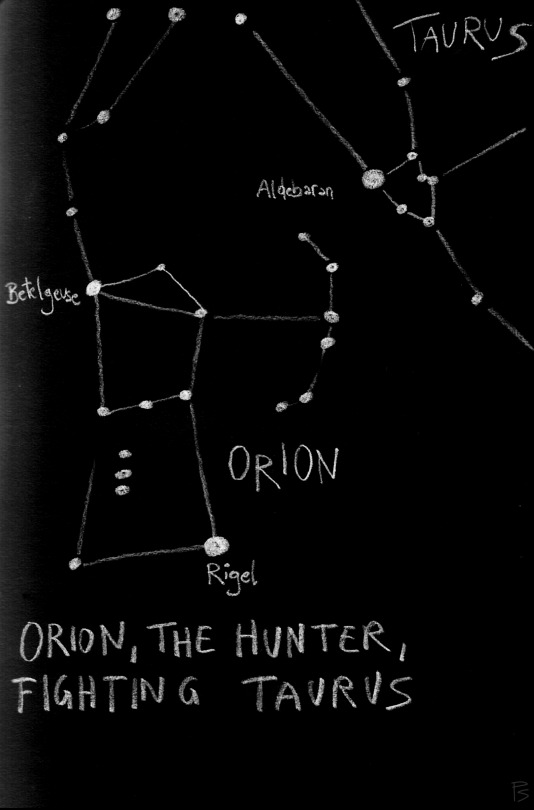 TAURUS
Aldebaran
Betelgeuse
ORION
Rigel
ORION, THE HUNTER,
FIGHTING TAURUS
PS